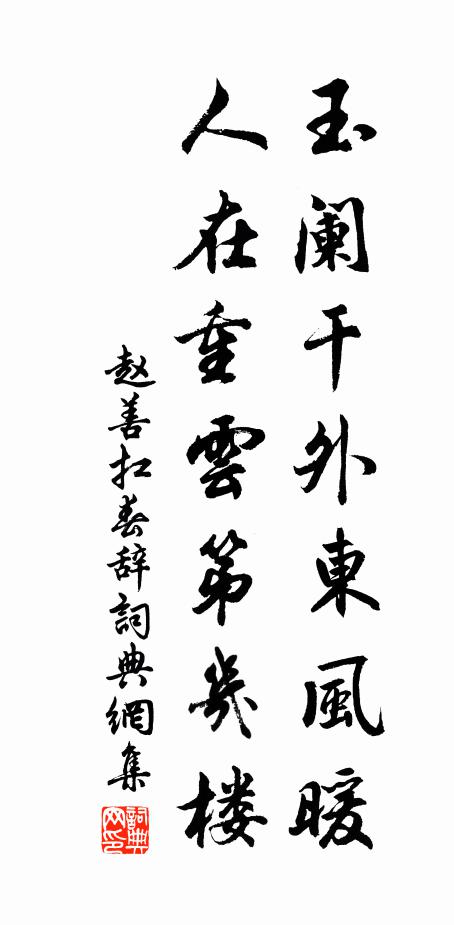 玉阑干外東風暖
人在重雲第幾楼
赵善扛春辞詞典網集
詞典网印